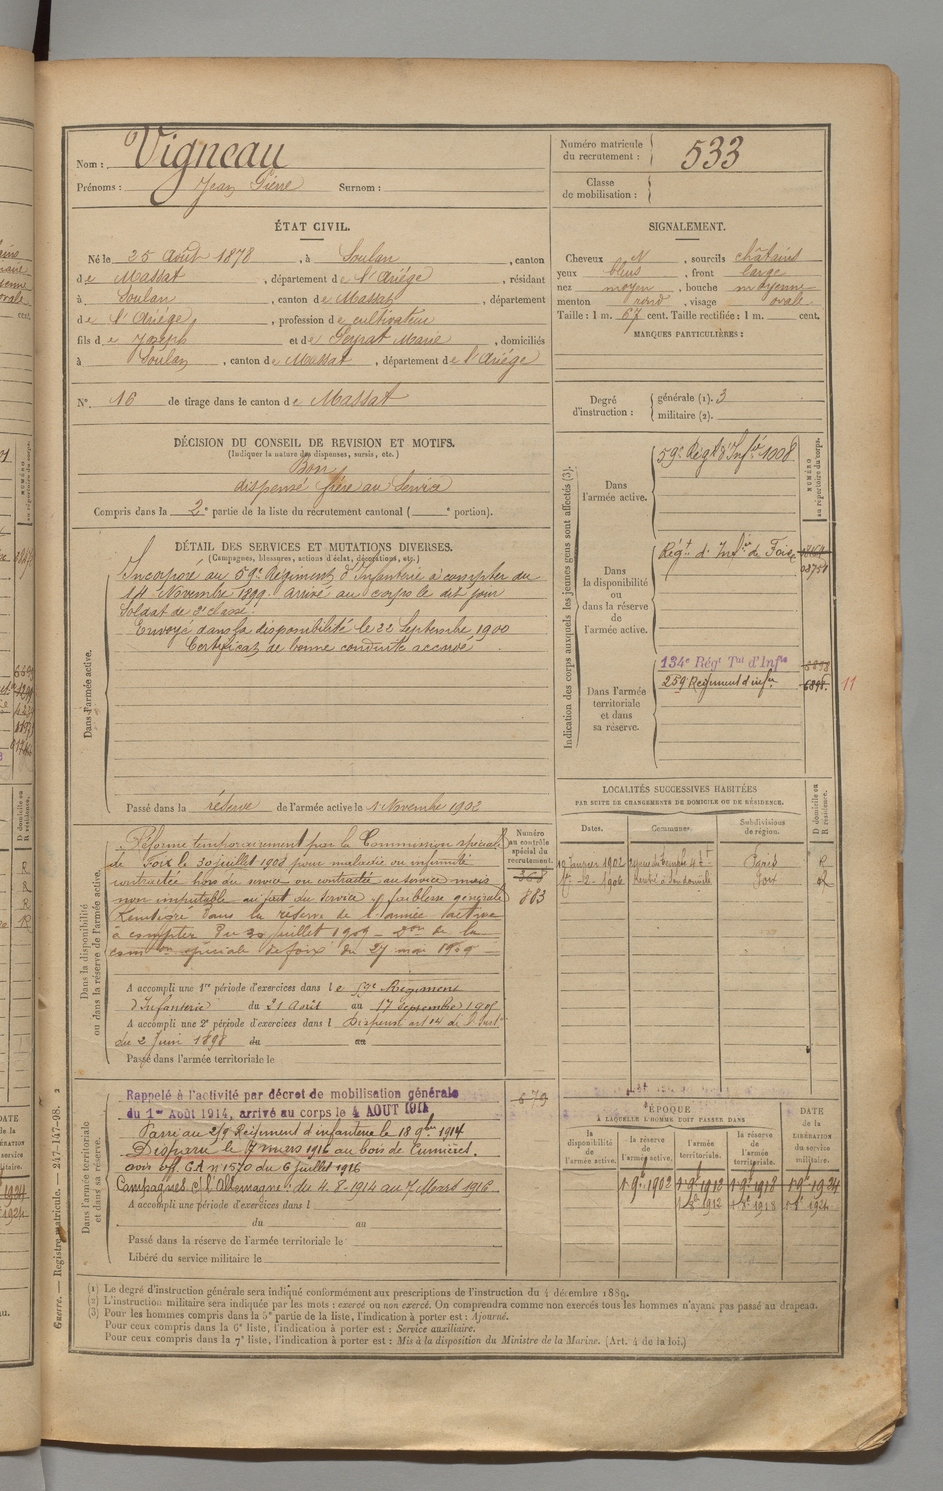 Nom : Vigneau
Prénoms : Jean Pierre Surnom :
Numéro matricule du recrutement : 533
Classe de mobilisation :
ÉTAT CIVIL.
Né le 25 Août 1878, à Soulan, canton
de Massat, département de l'Ariége, résidant
à Soulan, canton de Massat, département
de l'Ariége, profession de cultivateur
fils de Joseph et de Marie, domiciliés
à Soulan, canton de Massat, département de l'Ariége
N° 16 de tirage dans le canton de Massat
SIGNALEMENT.
Cheveux N, sourcils châtains
yeux bleus, front large
nez moyen, bouche moyenne
menton rond, visage ovale
Taille : 1 m. 67 cent. Taille rectifiée : 1 m. cent.
MARQUES PARTICULIÈRES :
Degré d'instruction : générale (1). 3
militaire (2).
DÉCISION DU CONSEIL DE REVISION ET MOTIFS.
(Indiquer la nature des dispenses, sursis, etc.)
Bon
dispensé frère au Service
Compris dans la 2e partie de la liste du recrutement cantonal ( e portion).
DÉTAIL DES SERVICES ET MUTATIONS DIVERSES.
(Campagnes, blessures, actions d'éclat, décorations, etc.)
Dans l'armée active.
Incorporé au 59e Régiment d'Infanterie à compter du
14 Novembre 1899. Arrivé au corps le dit jour
Soldat de 2e classe.
Envoyé dans la disponibilité le 22 Septembre 1900
Certificat de bonne conduite accordé
Passé dans la réserve de l'armée active le 1 Novembre 1902
Indication des corps auxquels les jeunes gens sont affectés (3).
NUMÉRO au répertoire du corps.
Dans l'armée active.
59e Régt d'Infie 1008
Dans la disponibilité ou dans la réserve de l'armée active.
Régt d'Infie de Foix
08751
Dans l'armée territoriale et dans sa réserve.
134e Régt Tal d'Infie
259 Régiment d'infie 6898 11
LOCALITÉS SUCCESSIVES HABITÉES
PAR SUITE DE CHANGEMENTS DE DOMICILE OU DE RÉSIDENCE.
Dates. Communes. Subdivisions de région. D domicile ou R résidence.
19 Janvier 1902 Paris R
1er -2- 1906 Rentré à son domicile Foix R
Dans la disponibilité ou dans la réserve de l'armée active.
Numéro au contrôle spécial du recrutement.
368
883
Réformé temporairement par la Commission spéciale
de Foix le 30 juillet 1908 pour maladie ou infirmité
contractée hors du service ou contractée au service mais
non imputable au fait du Service faiblesse générale
Réintégré dans la réserve de l'armée active
à compter du 30 juillet 1909 - Don de la
comon spéciale de Foix du 27 mai 1909
A accompli une 1re période d'exercices dans le 59e Régiment
d'Infanterie du 21 Août au 17 septembre 1905
A accompli une 2e période d'exercices dans l Dispensé art 14 de l'Inston
du 2 Juin 1898 du au
Passé dans l'armée territoriale le
Dans l'armée territoriale et dans sa réserve.
Rappelé à l'activité par décret de mobilisation générale
du 1er Août 1914, arrivé au corps le 4 AOUT 1914
679
Passé au 259 Régiment d'infanterie le 18 9bre 1914
Disparu le 7 mars 1916 au bois de Cumières.
avis off. GA n°1570 du 6 juillet 1916
Campagnes : C. l'Allemagne : du 4.8.1914 au 7 Mars 1916
A accompli une période d'exercices dans l
du au
Passé dans la réserve de l'armée territoriale le
Libéré du service militaire le
ÉPOQUE
A LAQUELLE L'HOMME DOIT PASSER DANS
la disponibilité de l'armée active. la réserve de l'armée active. l'armée territoriale. la réserve de l'armée territoriale. DATE de la LIBÉRATION du service militaire.
1 9e 1902 1 9e 1912 1 9e 1918 1 9e 1924
1 8e 1912 1 8e 1918 1 8e 1924
(1) Le degré d'instruction générale sera indiqué conformément aux prescriptions de l'instruction du 4 décembre 1889.
(2) L'instruction militaire sera indiquée par les mots : exercé ou non exercé. On comprendra comme non exercés tous les hommes n'ayant pas passé au drapeau.
(3) Pour les hommes compris dans la 5e partie de la liste, l'indication à porter est : Ajourné.
Pour ceux compris dans la 6e liste, l'indication à porter est : Service auxiliaire.
Pour ceux compris dans la 7e liste, l'indication à porter est : Mis à la disposition du Ministre de la Marine. (Art. 4 de la loi.)
Guerre. — Registre matricule. — 247-147-98.